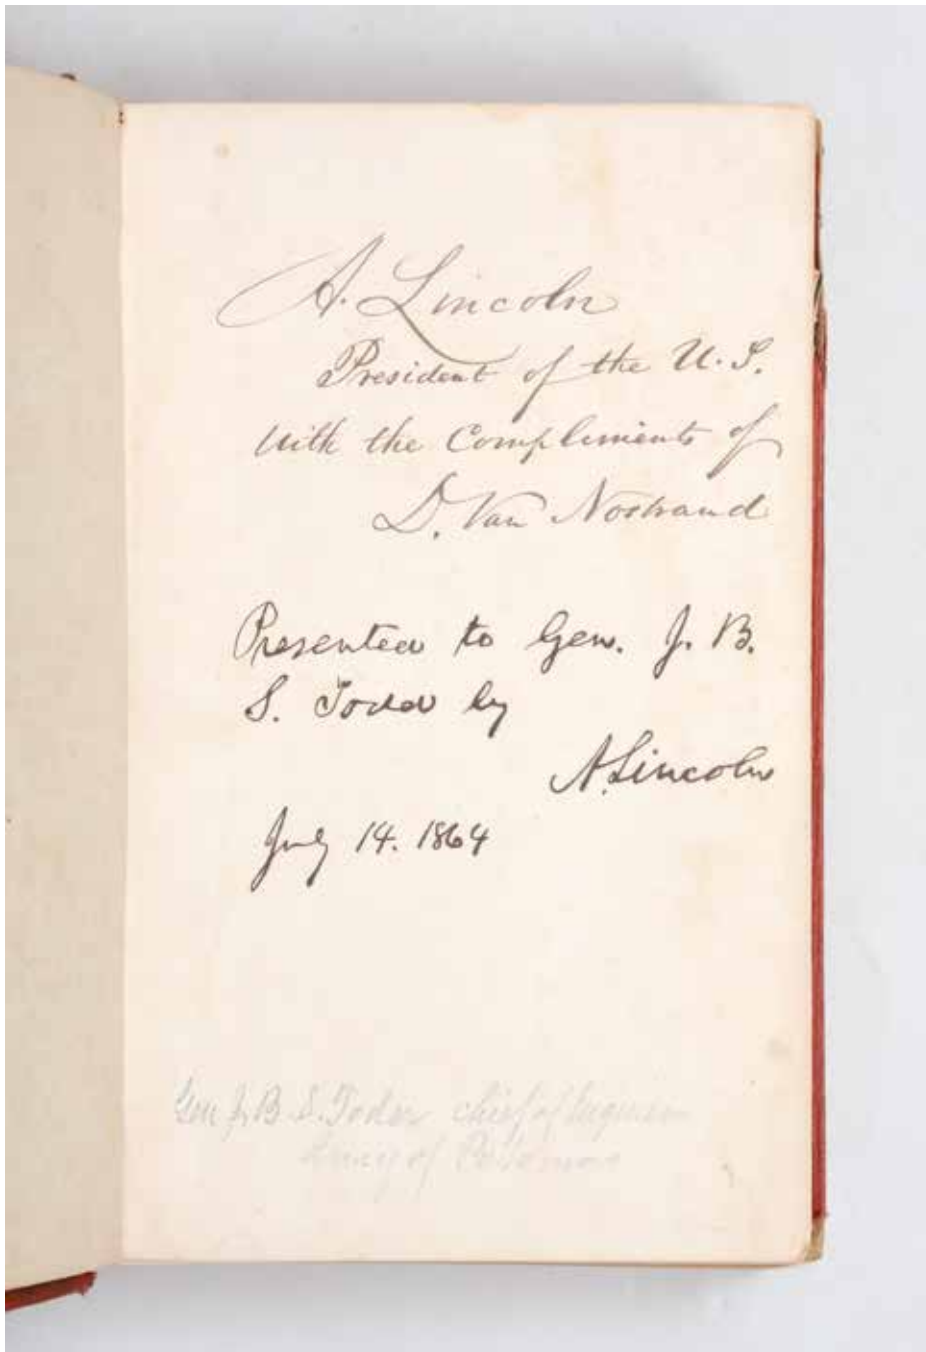 A. Lincoln
President of the U.S.
with the Compliments of
D. Van Nostrand
Presented to Gen. J. B.
S. Todd by
A. Lincoln
July 14. 1864
Gen J. B. S. Todd chief of
Army of